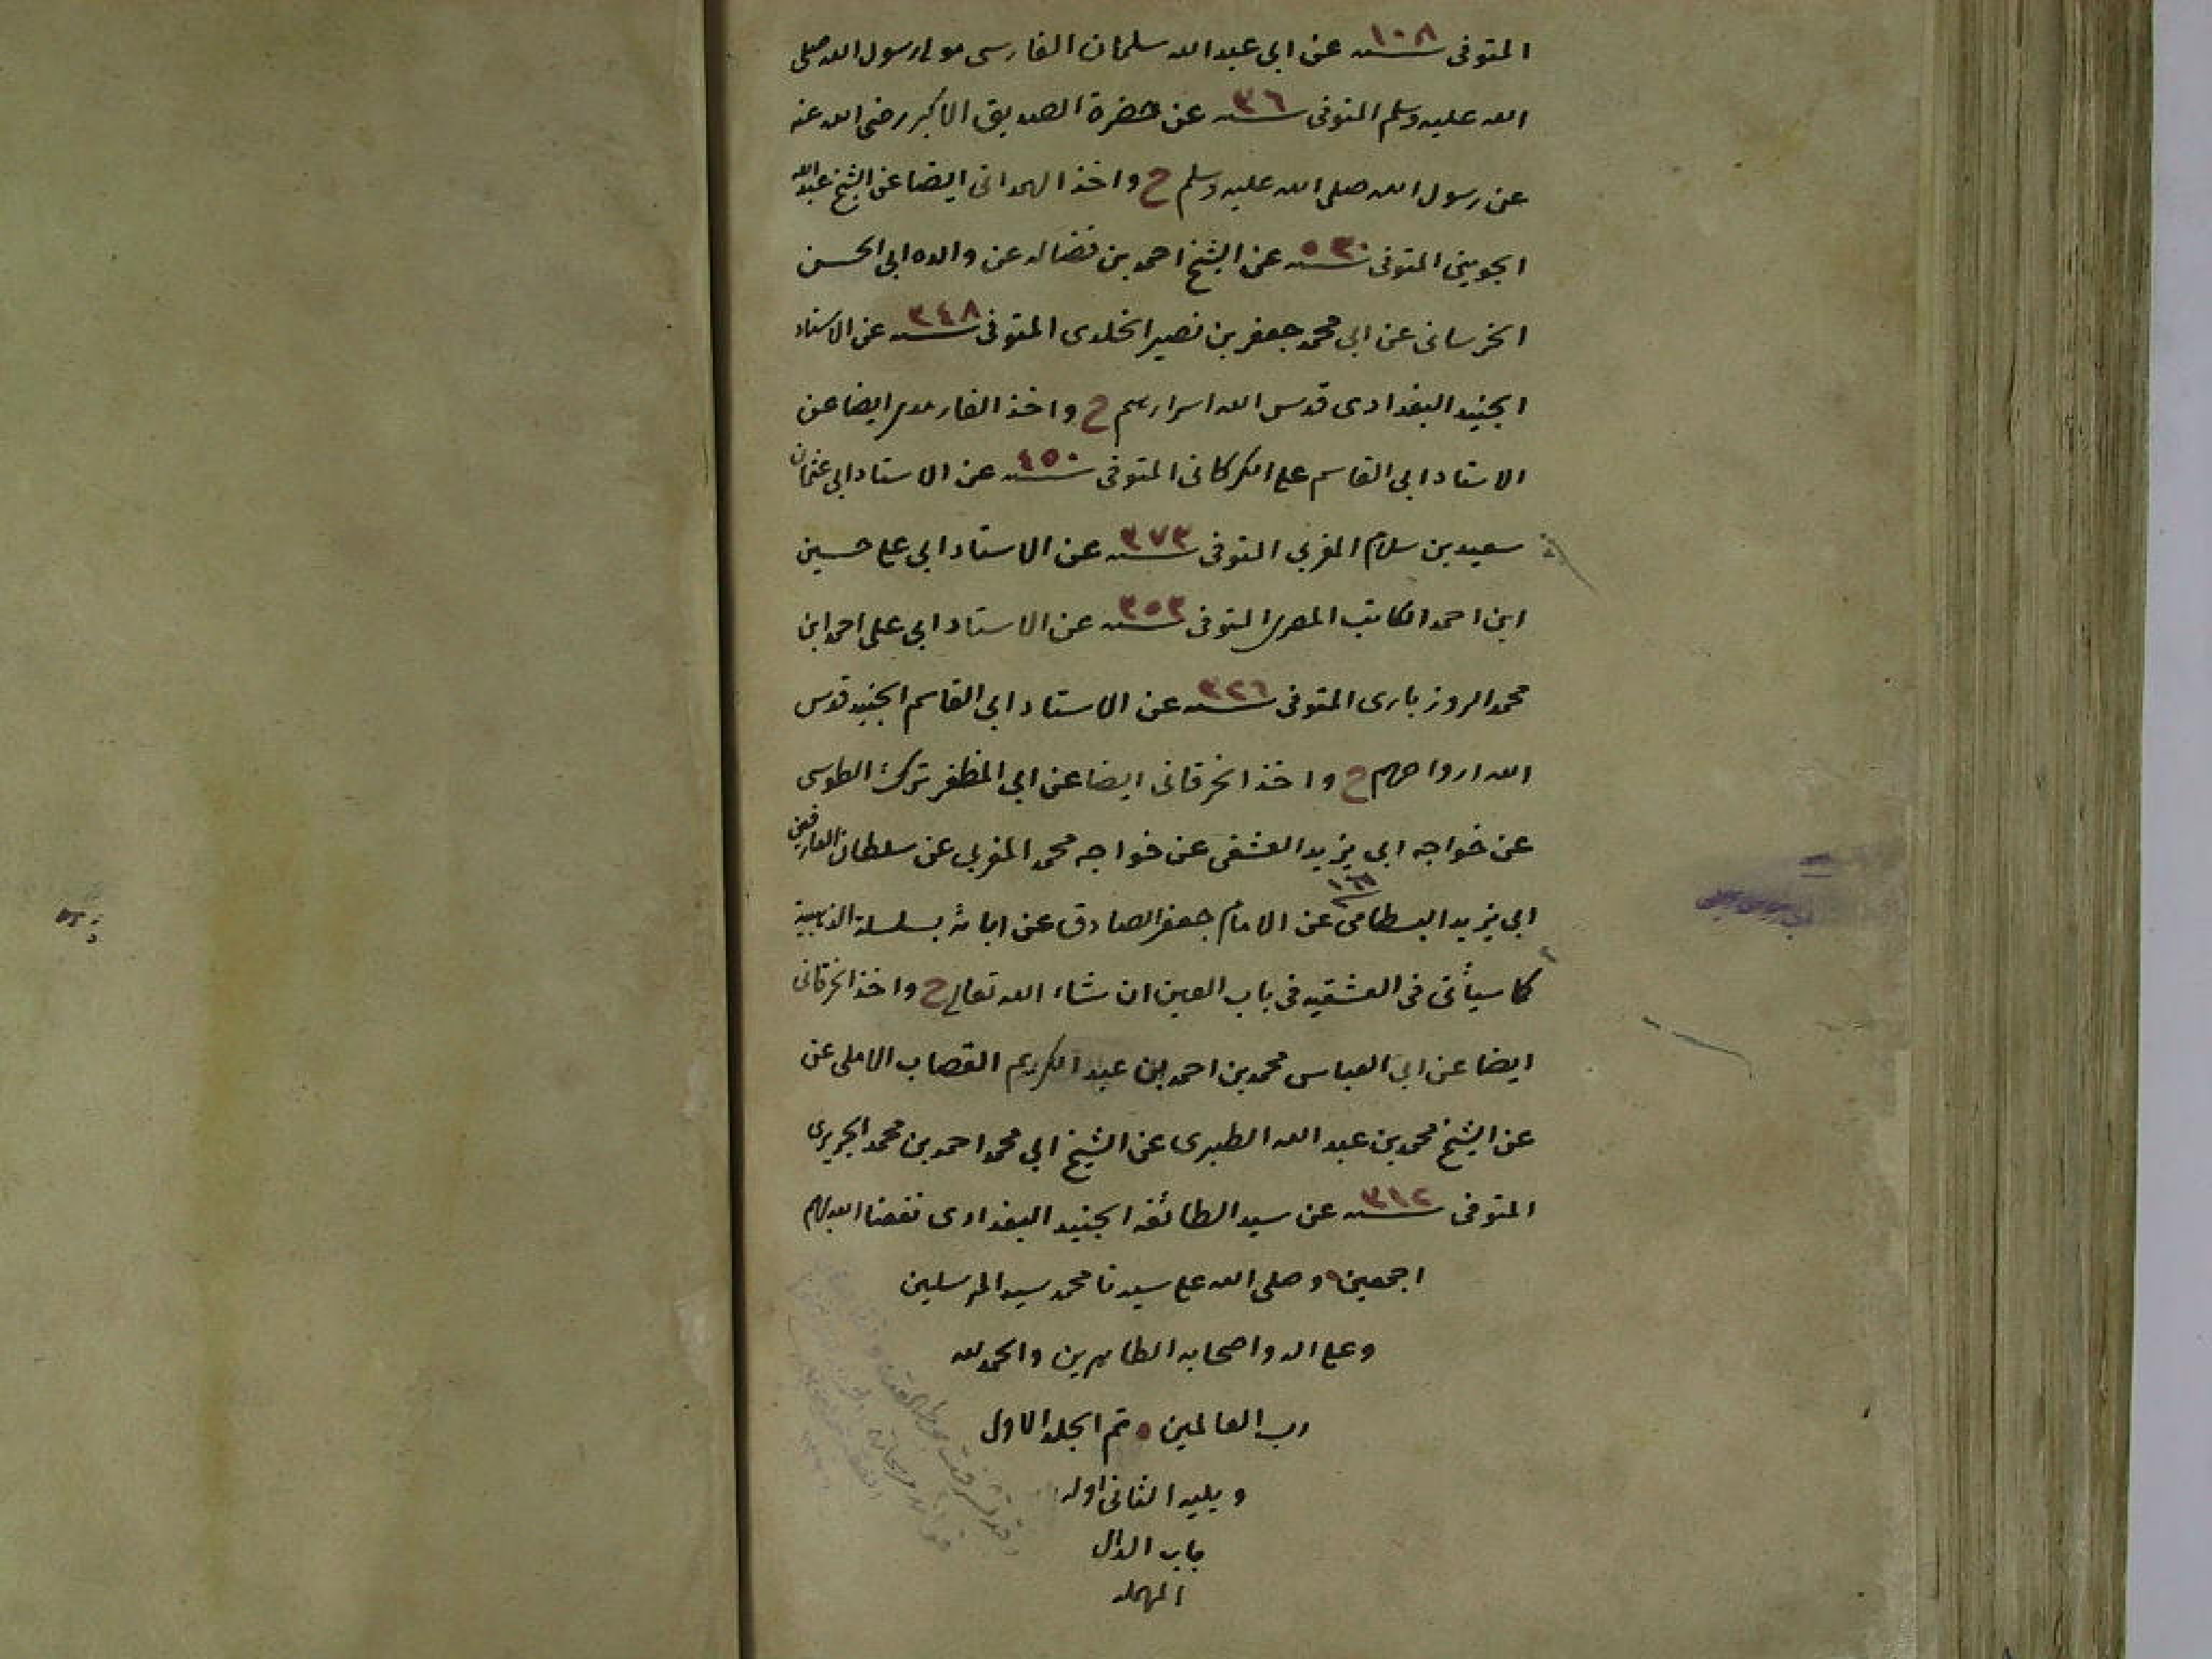 المتوفى سنه ١٠٨ عن ابى عبد الله سلمان الفارسى مولى رسول الله صلى
الله عليه وسلم المتوفى سنه ٣٦ عن حضرة الصديق الاكبر رضى الله عنه
عن رسول الله صلى الله عليه وسلم ح واخذ الهمدانى ايضا عن الشيخ عبد الله
الجوينى المتوفى سنه ٥٣٠ عن الشيخ احمد بن فضاله عن والده ابى الحسن
الخرسانى عن ابى محمد جعفر بن نصير الخلدى المتوفى سنه ٣٤٨ عن الاستاد
الجنيد البغدادى قدس الله اسرارهم ح واخذ الفارمدى ايضا عن
الاستاد ابى القاسم على الكركانى المتوفى سنه ٤٥٠ عن الاستاد ابى عثمان
سعيد بن سلام المغربى المتوفى سنه ٣٧٣ عن الاستاد ابى على حسين
ابن احمد الكاتب المصرى المتوفى سنه ٣٥٣ عن الاستاد ابى على احمد ابن
محمد الروزبارى المتوفى سنه ٣٢٦ عن الاستاد ابى القاسم الجنيد قدس
الله ارواحهم ح واخذ الخرقانى ايضا عن ابى المظفر ترك الطوسى
عن خواجه ابى يزيد العشقى عن خواجه محمد المغربى عن سلطان العارفين
ابى يزيد البسطامى عن الامام جعفر الصادق عن ابائه بسلسلة الذهبية
كما سيأتى فى العشقيه فى باب العين ان شاء الله تعالى ح واخذ الخرقانى
ايضا عن ابى العباس محمد بن احمد بن عبد الكريم القصاب الاملى عن
عن الشيخ محمد بن عبد الله الطبرى عن الشيخ ابى محمد احمد بن محمد الجريرى
المتوفى سنه ٣١٢ عن سيد الطائفه الجنيد البغدادى نفعنا الله بهم
اجمعين وصلى الله على سيدنا محمد سيد المرسلين
وعلى اله واصحابه الطاهرين والحمد لله
رب العالمين ه تم الجلد الاول
ويليه الثانى اوله
باب الدال
المهمله